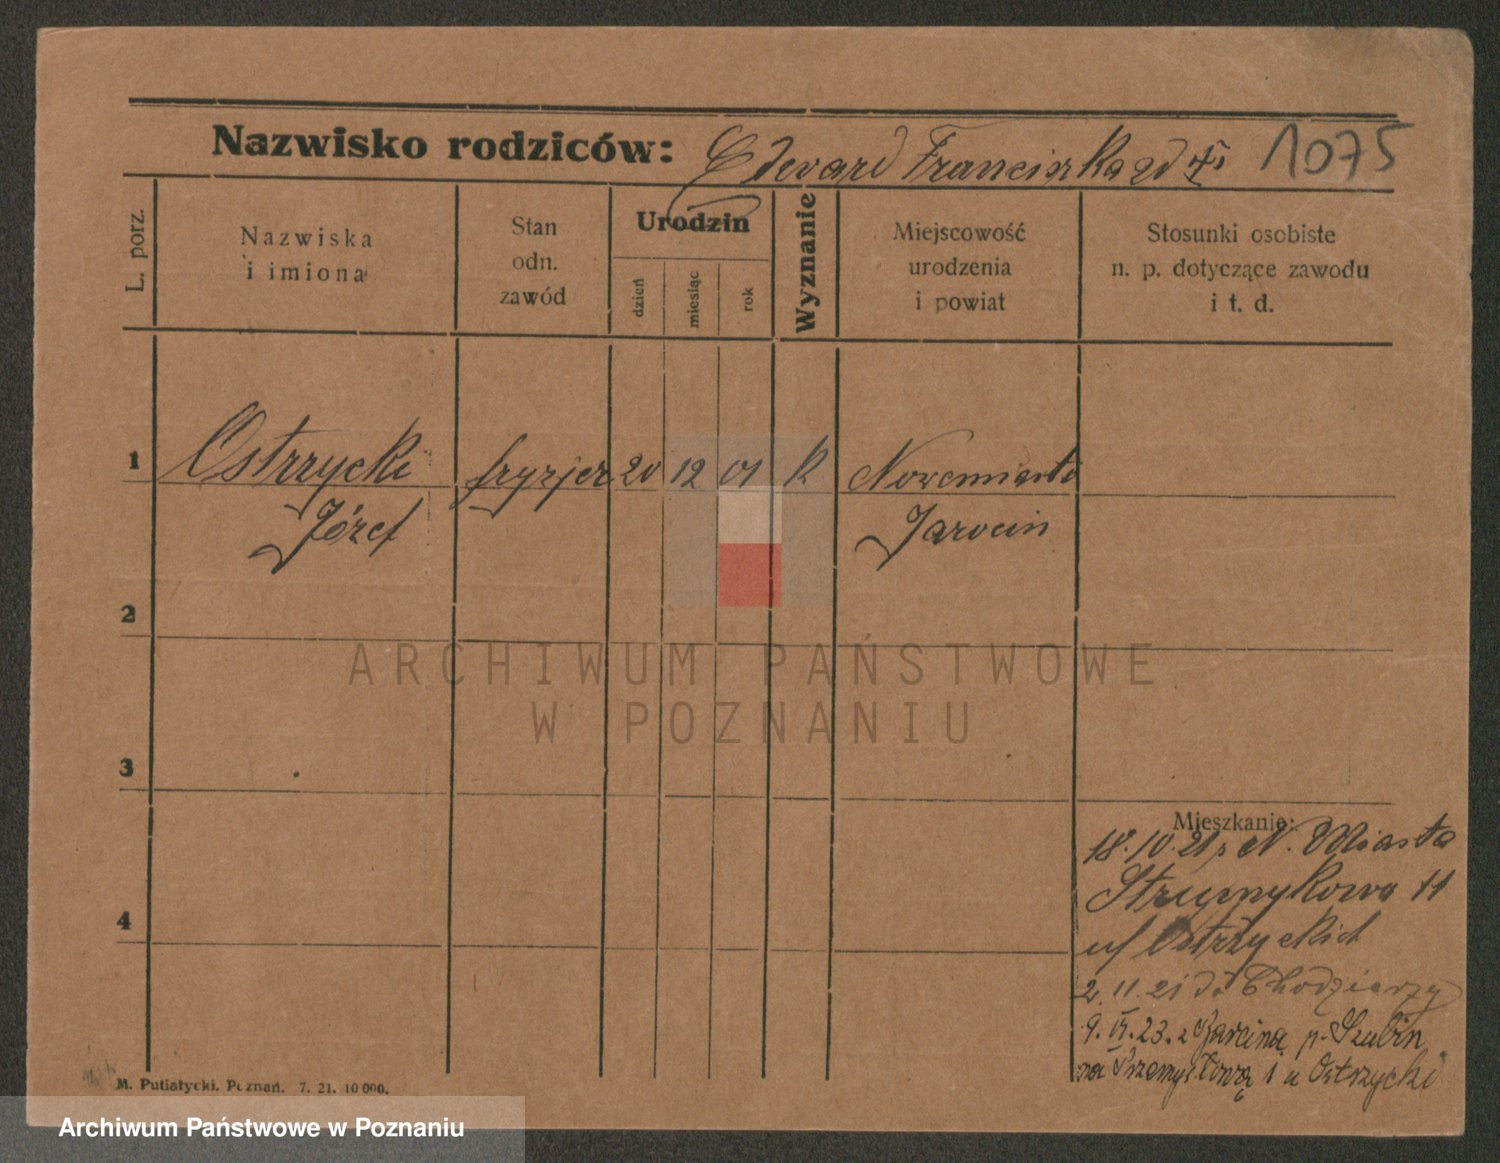 Nazwisko rodziców: Edward Franciszka zd 1075
L. porz.
Nazwiska
i imiona
Stan
odn.
zawód
Urodzin
dzień
miesiąc
rok
Wyznanie
Miejscowość
urodzenia
i powiat
Stosunki osobiste
n. p. dotyczące zawodu
i t. d.
1 Ostrzycki fryzjer 20 12 01 k Nowemiasto
Józef Jarocin
2
ARCHIWUM PAŃSTWOWE
W POZNANIU
3
Mieszkanie:
18.10.21 z N. Miasta
Strumykowa 11
u/ Ostrzyckich
4
2.11.21 do Chodzierzy
9. 23. z Barcina p. Szubin
na Przemysłową 1 u Ostrzycki
M. Putiatycki. Poznań. 7. 21. 10 000.
Archiwum Państwowe w Poznaniu